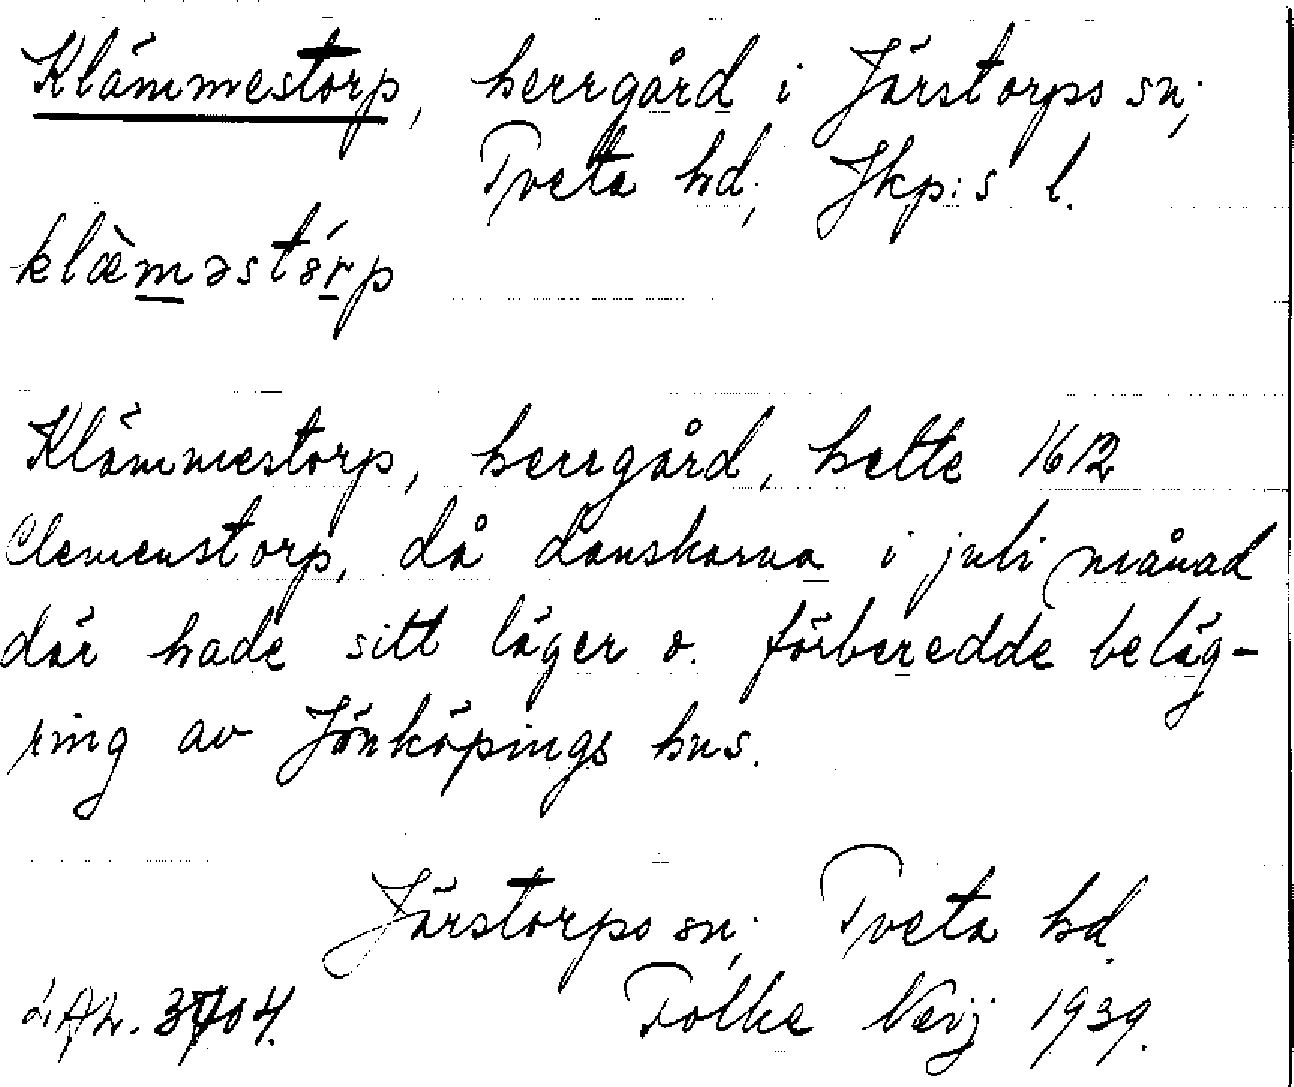 Klämmestorp, herrgård i Järstorps sn;
Tveta hd; Jkp:s l.
klæ̀məstórp
Klämmestorp, herrgård, hette 1612
Clemenstorp, då danskarna i juli månad
där hade sitt läger o. förberedde beläg-
ring av Jönköpings hus.
Järstorps sn; Tveta hd.
Folke Neij 1939.